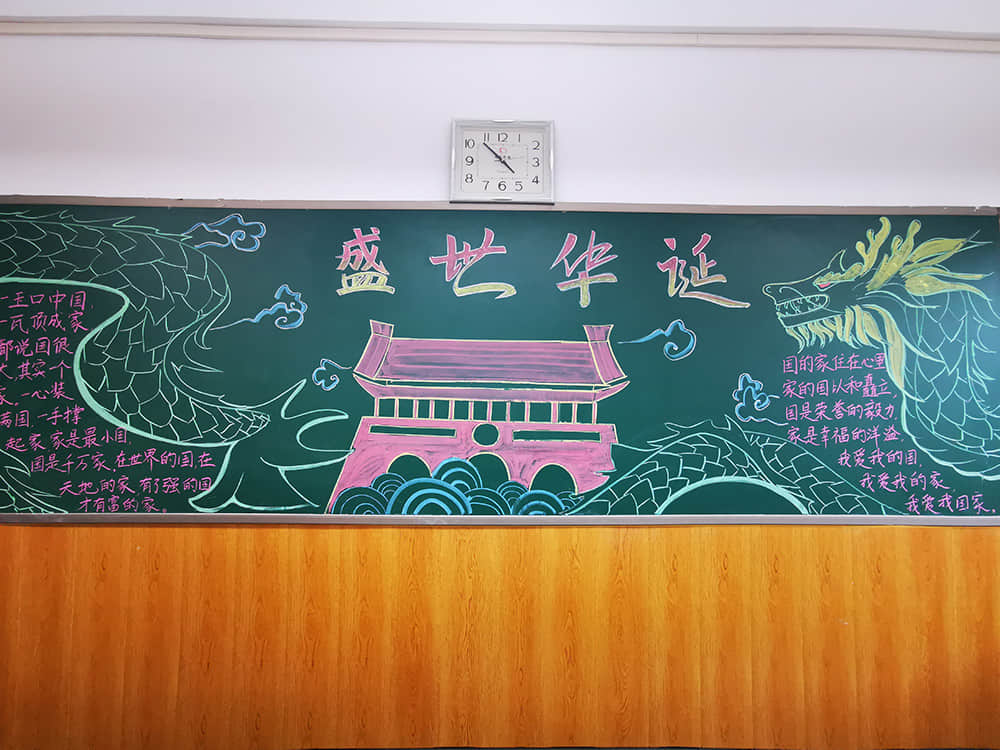 盛世华诞
一玉口中国
一瓦顶成家
都说国很
大,其实一个
家,一心装
满国,一手撑
起家,家是最小国,
国是千万家,在世界的国,在
天地的家,有了强的国
才有富的家。
国的家住在心里
家的国以和矗立,
国是荣誉的毅力,
家是幸福的洋溢,
我爱我的国,
我爱我的家
我爱我国家。
10 11 12 1 2
9 3
8 7 6 5 4